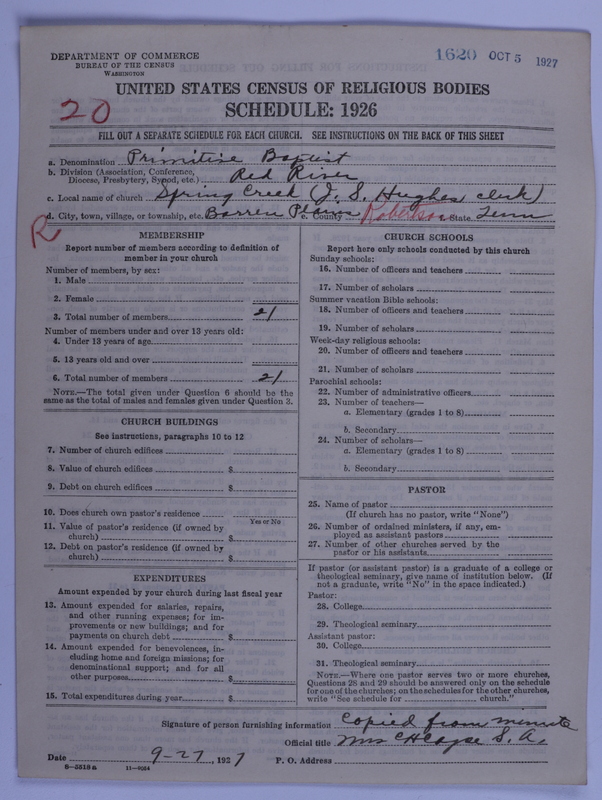 DEPARTMENT OF COMMERCE
BUREAU OF THE CENSUS
WASHINGTON
1620 OCT 5 1927
UNITED STATES CENSUS OF RELIGIOUS BODIES
20
SCHEDULE: 1926
FILL OUT A SEPARATE SCHEDULE FOR EACH CHURCH. SEE INSTRUCTIONS ON THE BACK OF THIS SHEET
a. Denomination Primitive Baptist
b. Division (Association, Conference, Diocese, Presbytery, Synod, etc.) Red River
c. Local name of church Spring Creek (J. S. Hughes clerk)
d. City, town, village, or township, etc. Barren Plains e. County Robertson State Tenn
R
MEMBERSHIP
Report number of members according to definition of
member in your church
Number of members, by sex:
1. Male
2. Female
3. Total number of members 21
Number of members under and over 13 years old:
4. Under 13 years of age
5. 13 years old and over
6. Total number of members 21
NOTE.—The total given under Question 6 should be the
same as the total of males and females given under Question 3.
CHURCH BUILDINGS
See instructions, paragraphs 10 to 12
7. Number of church edifices
8. Value of church edifices $
9. Debt on church edifices $
10. Does church own pastor's residence
Yes or No
11. Value of pastor's residence (if owned by
church) $
12. Debt on pastor's residence (if owned by
church) $
EXPENDITURES
Amount expended by your church during last fiscal year
13. Amount expended for salaries, repairs,
and other running expenses; for im-
provements or new buildings; and for
payments on church debt $
14. Amount expended for benevolences, in-
cluding home and foreign missions; for
denominational support; and for all
other purposes $
15. Total expenditures during year $
CHURCH SCHOOLS
Report here only schools conducted by this church
Sunday schools:
16. Number of officers and teachers
17. Number of scholars
Summer vacation Bible schools:
18. Number of officers and teachers
19. Number of scholars
Week-day religious schools:
20. Number of officers and teachers
21. Number of scholars
Parochial schools:
22. Number of administrative officers
23. Number of teachers—
a. Elementary (grades 1 to 8)
b. Secondary
24. Number of scholars—
a. Elementary (grades 1 to 8)
b. Secondary
PASTOR
25. Name of pastor
(If church has no pastor, write "None")
26. Number of ordained ministers, if any, em-
ployed as assistant pastors
27. Number of other churches served by the
pastor or his assistants
If pastor (or assistant pastor) is a graduate of a college or
theological seminary, give name of institution below. (If
not a graduate, write "No" in the space indicated.)
Pastor:
28. College
29. Theological seminary
Assistant pastor:
30. College
31. Theological seminary
NOTE.—Where one pastor serves two or more churches,
Questions 28 and 29 should be answered only on the schedule
for one of the churches; on the schedules for the other churches,
write "See schedule for church."
Signature of person furnishing information Copied from minute
Official title Mrs S. A.
Date 9-27, 1927 P. O. Address
8-5518a 11-9034